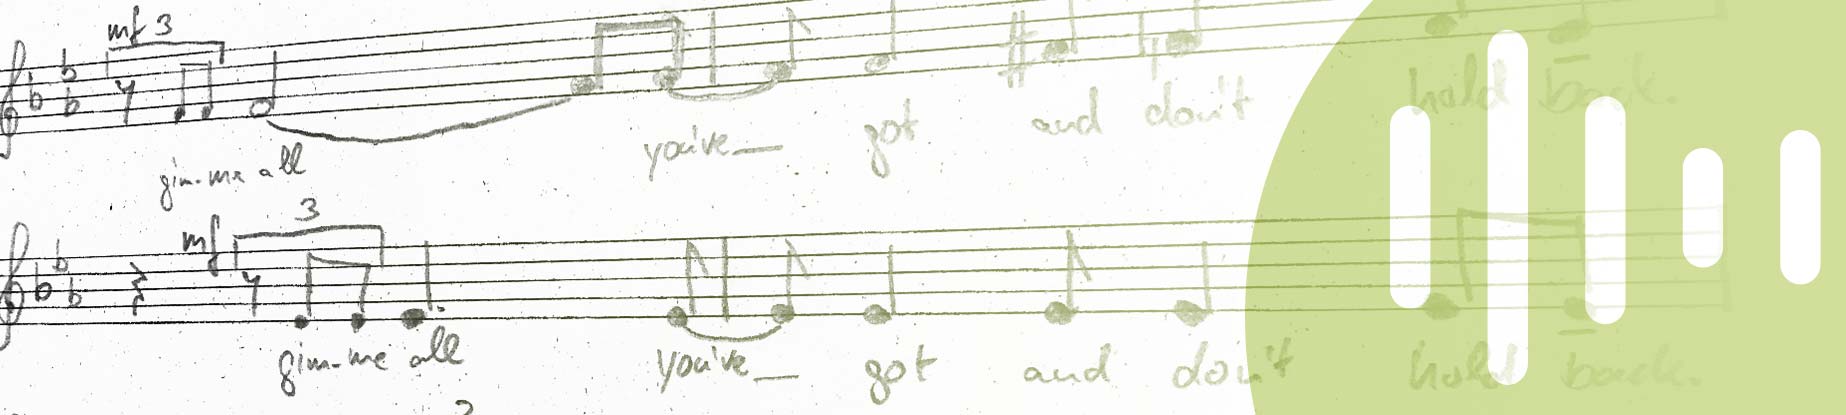 mf 3
gim-me all you've_ got and don't hold back.
mf 3
gim-me all you've_ got and don't hold back.